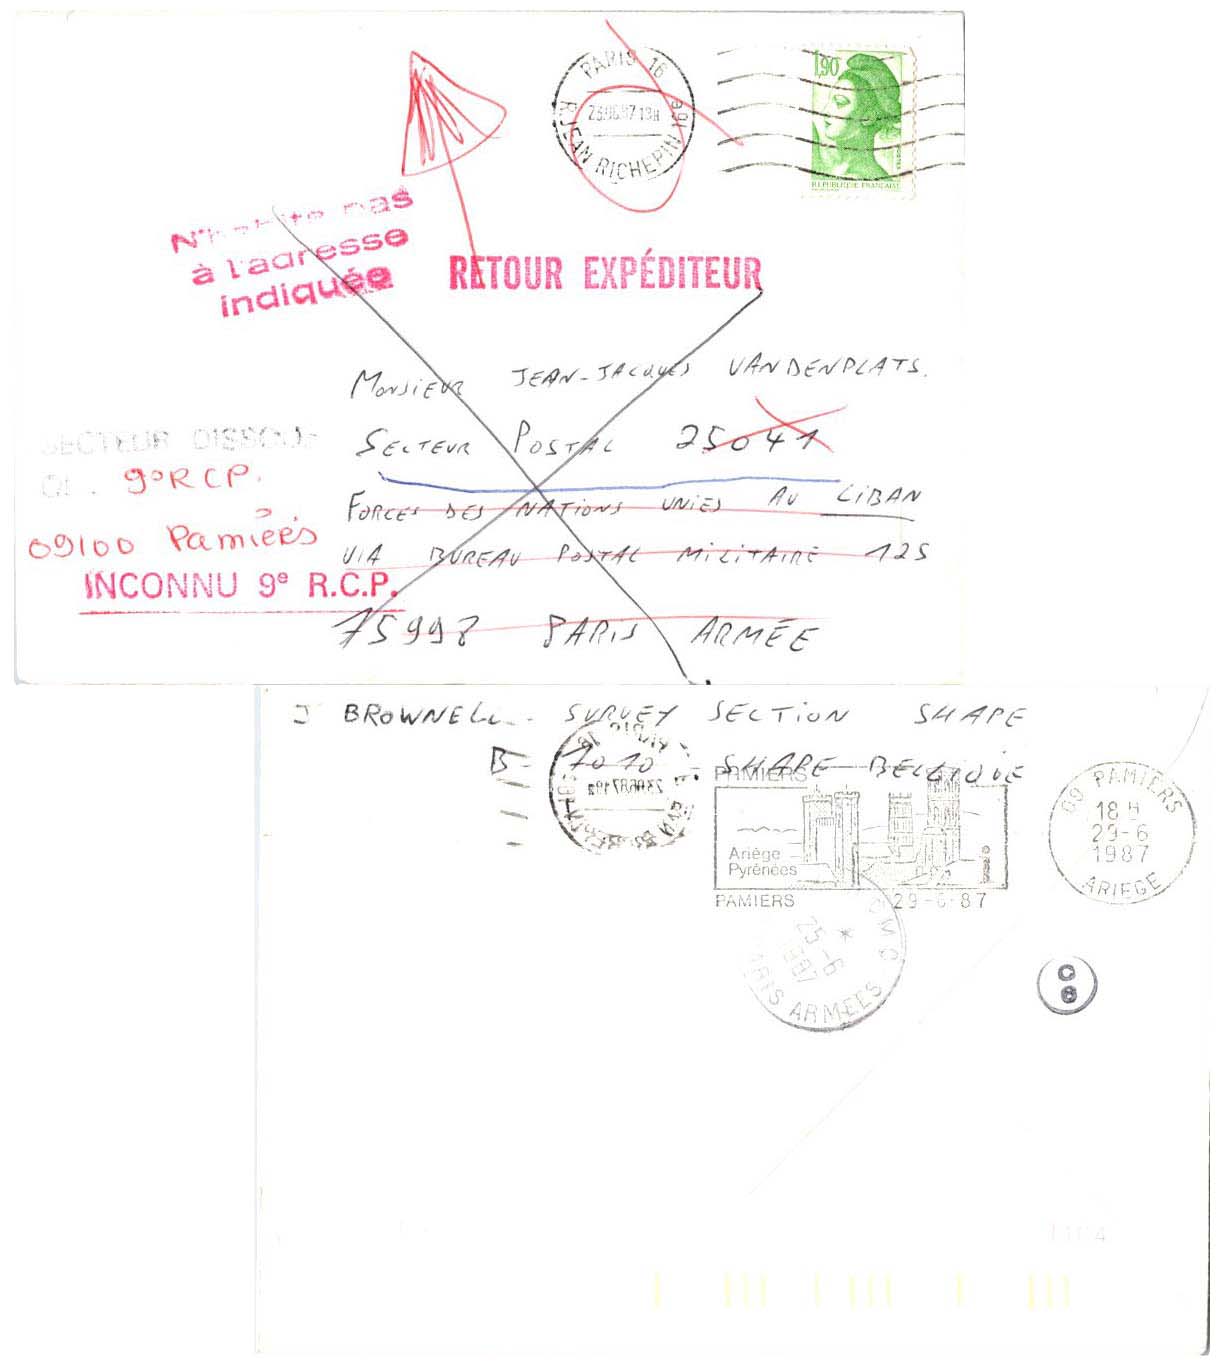 PARIS 16
23.06.87 19H
R. JEAN RICHEPIN 16e
1,90
REPUBLIQUE FRANCAISE
N'habite pas
à l'adresse
indiquée
RETOUR EXPÉDITEUR
MONSIEUR JEAN-JACQUES VANDENPLATS.
SECTEUR POSTAL 25041
SECTEUR DISSOUS
9° RCP.
FORCES DES NATIONS UNIES AU LIBAN
09100 Pamiers
VIA BUREAU POSTAL MILITAIRE 125
INCONNU 9e R.C.P.
75998 PARIS ARMÉE
J BROWNELL - SURVEY SECTION SHAPE
B- 7010 - SHAPE BELGIQUE
PAMIERS
Ariège
Pyrénées
PAMIERS 29-6-87
09 PAMIERS
18 H
29-6
1987
ARIEGE
25-6
1987
PARIS ARMEES
C
8